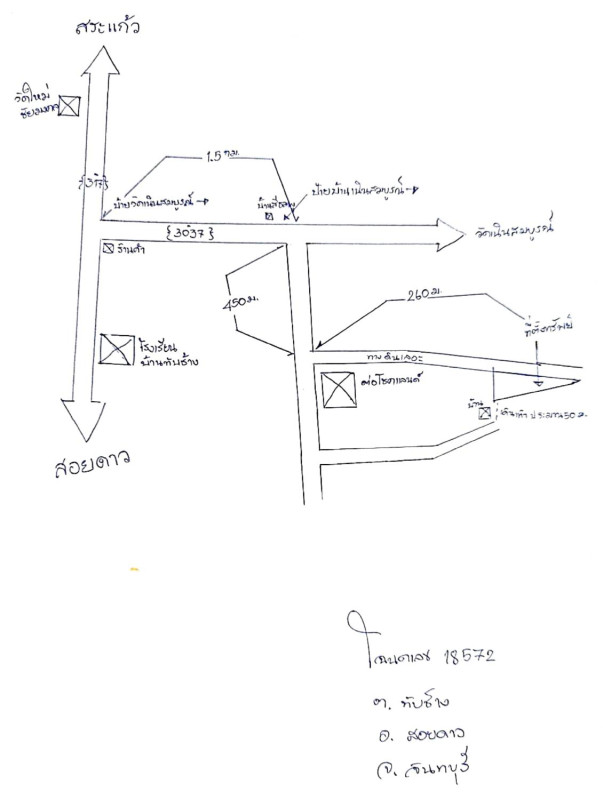 สระแก้ว
วัดใหม่
ชัยมงคล
1.5 กม.
{317}
ป้ายวัดเนินสมบูรณ์→
ป้ายบ้านเนินสมบูรณ์→
{3037}
วัดเนินสมบูรณ์
ร้านค้า
450 ม.
260 ม.
ที่ตั้งทรัพย์
โรงเรียน
บ้านทับช้าง
ทางดินเลอะ
ต่อโชคแลนด์
บ้าน
เดินเท้าประมาณ 50 ม.
สอยดาว
โฉนดเลข 18572
ต. ทับช้าง
อ. สอยดาว
จ. จันทบุรี